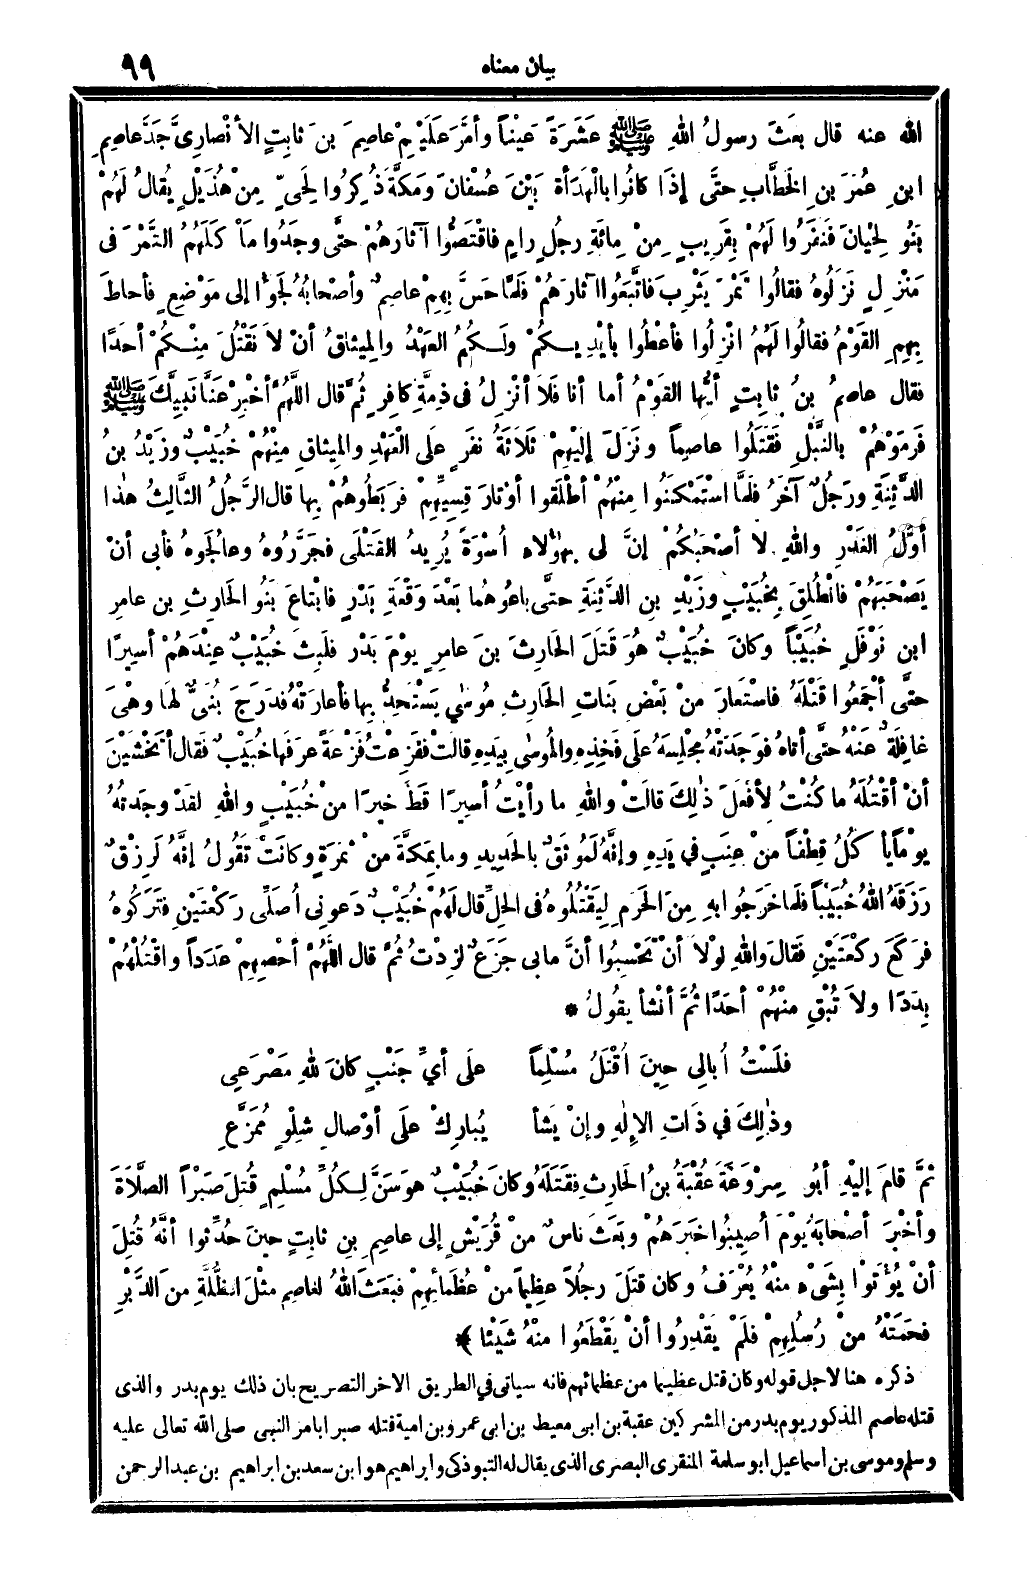 بيان معناه ٩٩
الله عنه قال بَعَثَ رسولُ اللهِ ﷺ عَشَرَةً عَيْناً وأَمَّرَ عَلَيْهِمْ عاصِمَ بنَ ثابِتٍ الأنْصارِيَّ جَدَّ عاصِمِ
ابنِ عُمَرَ بنِ الخَطَّابِ حتَّى إذَا كانُوا بالْهَدأةِ بَيْنَ عُسْفانَ ومَكَّةَ ذُكِرُوا لِحَيٍّ مِنْ هُذَيْلٍ يُقالُ لَهُمْ
بَنُو لِحْيانَ فَنَفَرُوا لَهُمْ بِقَرِيبٍ مِنْ مِائَةِ رجُلٍ رامٍ فاقْتَصُّوا آثارَهُمْ حتَّى وجَدُوا مأْكَلَهُمُ التَّمْرَ فى
مَنْزِلٍ نَزَلُوهُ فقالُوا تَمْرُ يَثْرِبَ فاتَّبَعُوا آثارَهُمْ فلَمَّا حَسَّ بِهِمْ عاصِمٌ وأصْحابُهُ لَجَؤُا إلى مَوْضِعٍ فأحاطَ
بِهِمِ القَوْمُ فقالُوا لَهُمُ انْزِلُوا فأعْطُوا بأيْدِيكُمْ ولَكُمُ العَهْدُ والمِيثاقُ أنْ لاَ نَقْتُلَ مِنْكُمْ أحَدًا
فقال عاصِمُ بنُ ثابِتٍ أيُّها القَوْمُ أما أنا فَلاَ أنْزِلُ فى ذِمَّةِ كافِرٍ ثُمَّ قال اللَّهُمَّ أخْبِرْ عَنَّا نَبِيَّكَ ﷺ
فَرَمَوْهُمْ بالنَّبْلِ فَقَتَلُوا عاصِماً ونَزَلَ إلَيْهِمْ ثَلاَثَةُ نَفَرٍ علَى الْعَهْدِ والمِيثاقِ مِنْهُمْ خُبَيْبٌ وزَيْدُ بنُ
الدَّثِنَةِ ورَجُلٌ آخَرُ فلَمَّا اسْتَمْكَنُوا مِنْهُمْ أطْلَقوا أوْتارَ قِسِيِّهِمْ فرَبَطُوهُمْ بِها قال الرَّجُلُ الثَّالِثُ هٰذا
أوَّلُ الغَدْرِ واللهِ لا أصْحَبُكُمْ إنَّ لِى بِهٰؤُلاَءِ أُسْوَةً يُرِيدُ القَتْلَى فجَرَّرُوهُ وعالَجوهُ فأبى أنْ
يَصْحَبَهُمْ فانْطُلِقَ بِخُبَيْبٍ وزَيْدِ بنِ الدَّثِنَةِ حتَّى باعُوهُما بَعْدَ وَقْعَةِ بَدْرٍ فابْتاعَ بَنُو الحَارِثِ بن عامِرِ
ابنِ نَوْفَلٍ خُبَيْباً وكانَ خُبَيْبٌ هُوَ قَتَلَ الحَارِثَ بنَ عامِرٍ يوْمَ بَدْرٍ فلَبِثَ خُبَيْبٌ عِنْدَهُمْ أسِيرًا
حتَّى أجْمَعُوا قَتْلَهُ فاسْتَعارَ مِنْ بَعْضِ بَناتِ الحَارِثِ مُوسٰى يَسْتَحِدُّ بِها فأعارَتْهُ فدَرَجَ بُنَىٌّ لهَا وهْىَ
غافِلَةٌ عَنْهُ حتَّى أتاهُ فوَجَدَتْهُ مُجْلِسَهُ علَى فَخِذِهِ والمُوسٰى بِيَدِهِ قالَتْ ففَزِعْتُ فَزْعَةً عرَفَها خُبَيْبٌ فقال أتَخْشَيْنَ
أنْ أقْتُلَهُ ما كُنْتُ لأفْعَلَ ذٰلِكَ قالَتْ واللهِ ما رأيْتُ أسِيرًا قَطُّ خيرًا مِنْ خُبَيْبٍ واللهِ لقَدْ وجَدتُهُ
يوْماً يأكُلُ قِطْفاً مِنْ عِنَبٍ في يَدِهِ وإنَّهُ لَمُوثَقٌ بالحَدِيدِ وما بِمَكَّةَ مِنْ ثَمَرَةٍ وكانَتْ تَقُولُ إنَّهُ لَرِزْقٌ
رَزَقَهُ اللهُ خُبَيْباً فلَمَّا خرَجُوا بِهِ مِنَ الحَرَمِ لِيَقْتُلُوهُ فى الحِلِّ قال لَهُمْ خُبَيْبٌ دَعونِي أُصَلِّى رَكْعَتَيْنِ فتَرَكُوهُ
فرَكَعَ ركْعَتَيْنِ فَقالَ واللهِ لوْلاَ أنْ تَحْسِبُوا أنَّ مابى جَزَعٌ لزِدْتُ ثُمَّ قال اللَّهُمَّ أحْصِهِمْ عَدَداً واقْتُلْهُمْ
بِدَدًا ولاَ تُبْقِ مِنْهُمْ أحَدًا ثُمَّ أنْشأ يقُولُ *
فلَسْتُ أُبالِى حِينَ أُقْتَلُ مُسْلِماً علَى أيِّ جَنْبٍ كانَ للهِ مَصْرَعِي
وذٰلِكَ في ذَاتِ الإلٰهِ وإنْ يَشأ يُبارِكْ علَى أوْصالِ شِلْوٍ مُمَزَّعِ
ثُمَّ قامَ إلَيْهِ أبُو سِرْوَعَةَ عُقْبَةُ بنُ الحَارِثِ فقَتَلَهُ وكانَ خُبَيْبٌ هوَ سَنَّ لِكُلِّ مُسْلِمٍ قُتِلَ صَبْراً الصَّلاَةَ
وأخْبَرَ أصْحابَهُ يَوْمَ أُصِيبُوا خبَرَهُمْ وبَعَثَ ناسٌ مِنْ قُرَيْشٍ إلى عاصِمِ بنِ ثابِتٍ حينَ حُدِّثوا أنَّهُ قُتِلَ
أنْ يُؤْتَوْا بِشَيْءٍ مِنْهُ يُعْرَفُ وكان قتَلَ رجُلاً عظِيماً مِنْ عُظَمائِهِمْ فبَعَثَ اللهُ لعاصِمٍ مِثْلَ الظُّلَّةِ مِنَ الدَّبْرِ
فحَمَتْهُ مِنْ رُسُلِهِمْ فلَمْ يَقْدِرُوا أنْ يَقْطَعُوا مِنْهُ شَيْئًا ﴾*
ذكره هنا لاجل قوله وكان قتل عظيما من عظمائهم فانه سياتى في الطريق الاخر التصريح بان ذلك يوم بدر والذى
قتله عاصم المذكور يوم بدر من المشركين عقبة بن ابى معيط بن ابى عمرو بن امية قتله صبرا بامر النبى صلى الله تعالى عليه
وسلم وموسى بن اسماعيل ابو سلمة المنقرى البصرى الذى يقال له التبوذكى وابراهيم هو ابن سعد بن ابراهيم بن عبد الرحمن